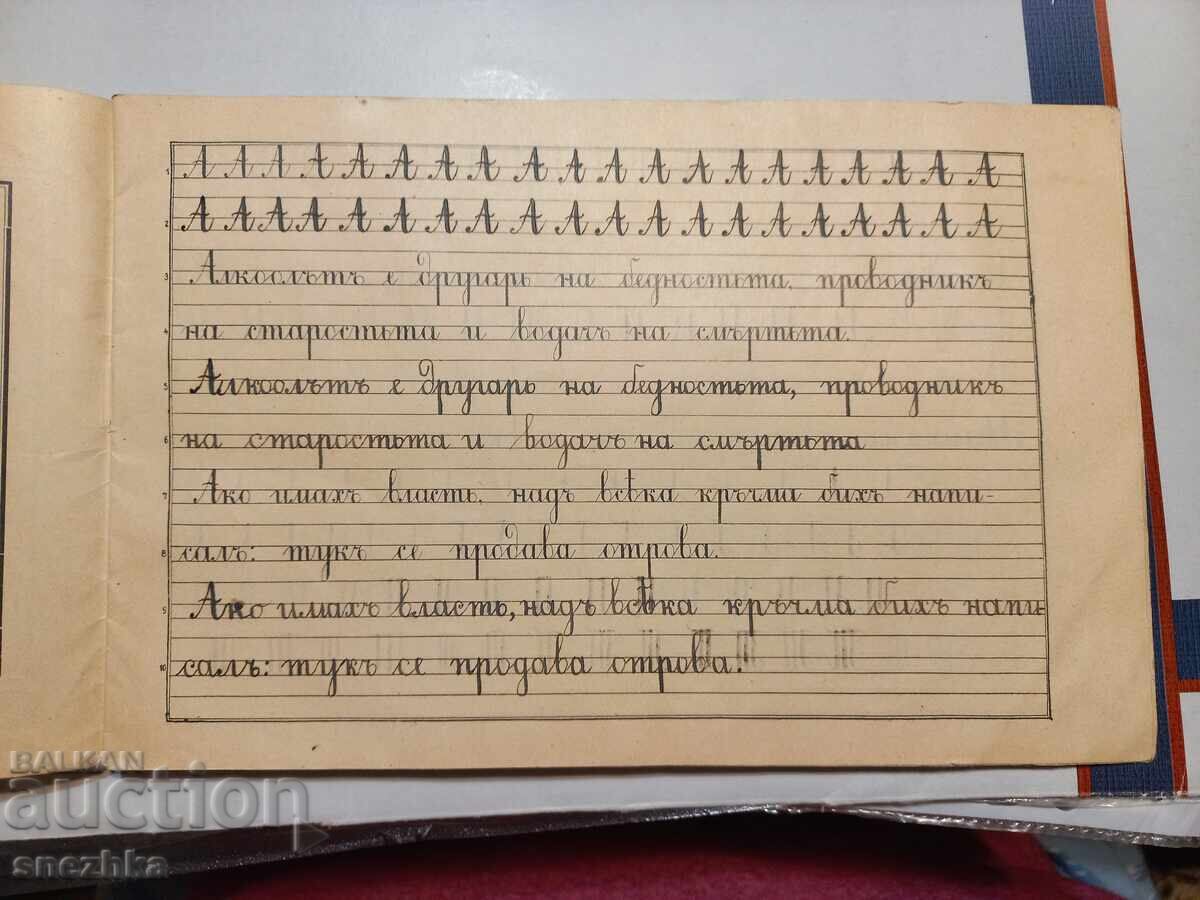 1 А А А А А А А А А А А А А А А А А А А А
2 А А А А А А А А А А А А А А А А А А А А
3 Алкоолътъ е другарь на бедностьта, проводникъ
4 на старостьта и водачъ на смъртьта.
5 Алкоолътъ е другарь на бедностьта, проводникъ
6 на старостьта и водачъ на смъртьта
7 Ако имахъ власть, надъ всѣка кръчма бихъ напи-
8 салъ: тукъ се продава отрова.
9 Ако имахъ власть, надъ всѣка кръчма бихъ напи-
10 салъ: тукъ се продава отрова.
BALKAN
auction
snezhka